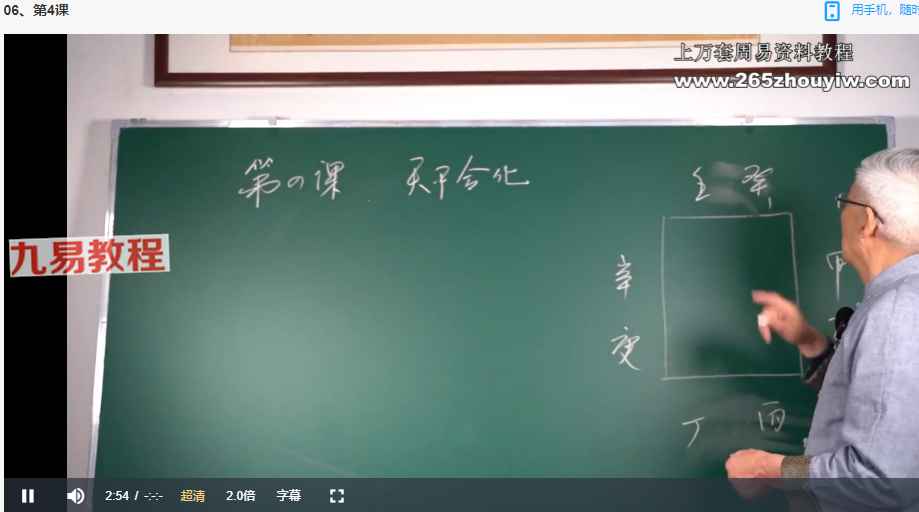 06、第4课
用手机，随时
上万套周易资料教程
www.265zhouyiw.com
第四课 天干合化
壬 癸
辛
庚
甲
丁 丙
九易教程
2:54 / -:-:-
超清
2.0倍
字幕